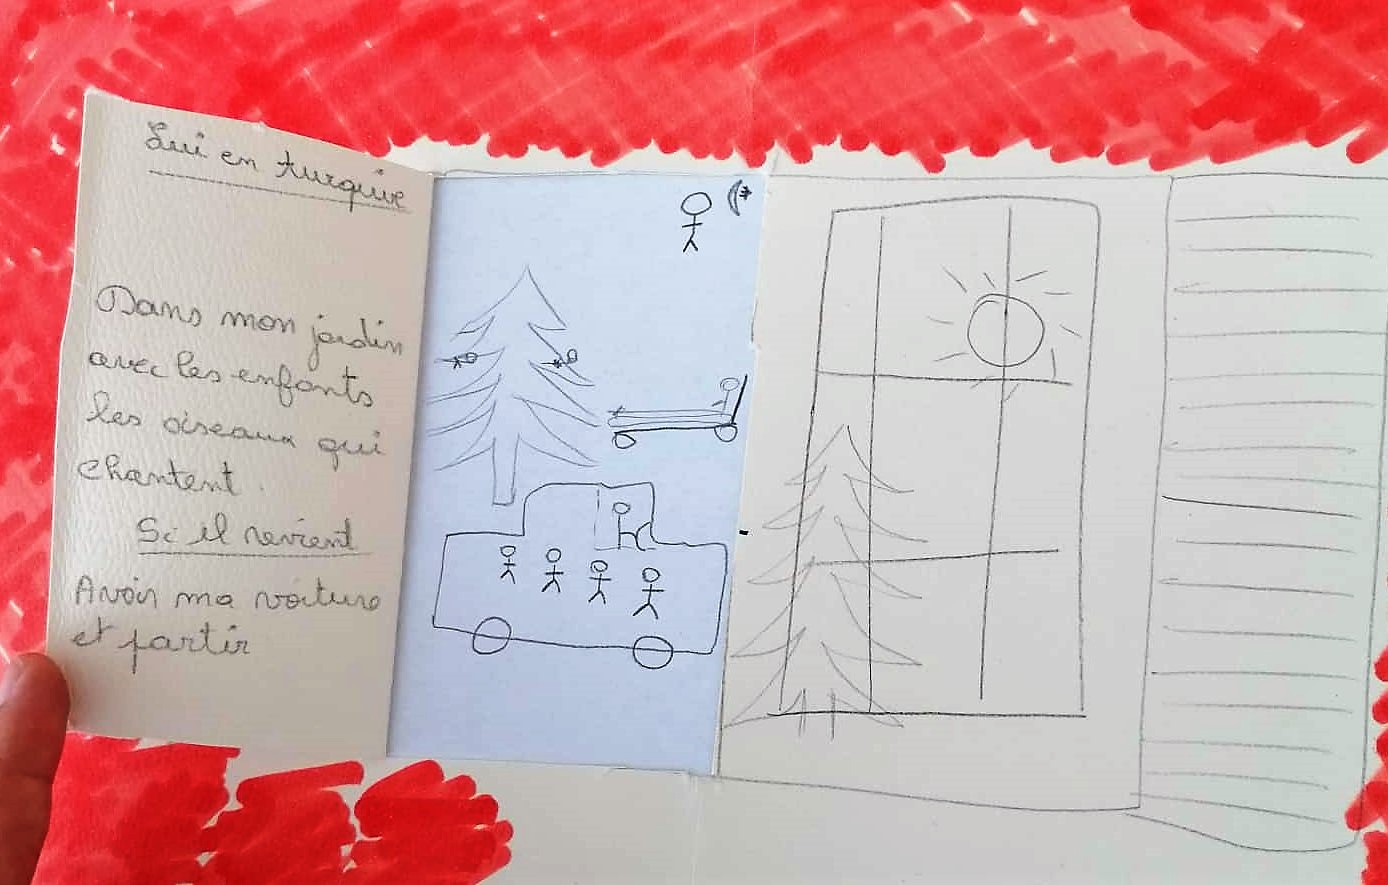 Lui en turquie
Dans mon jardin
avec les enfants
les oiseaux qui
chantent.
Si il revient
Avoir ma voiture
et partir